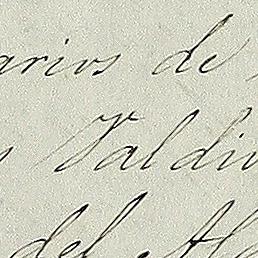 arios de
Valdiv
del Al